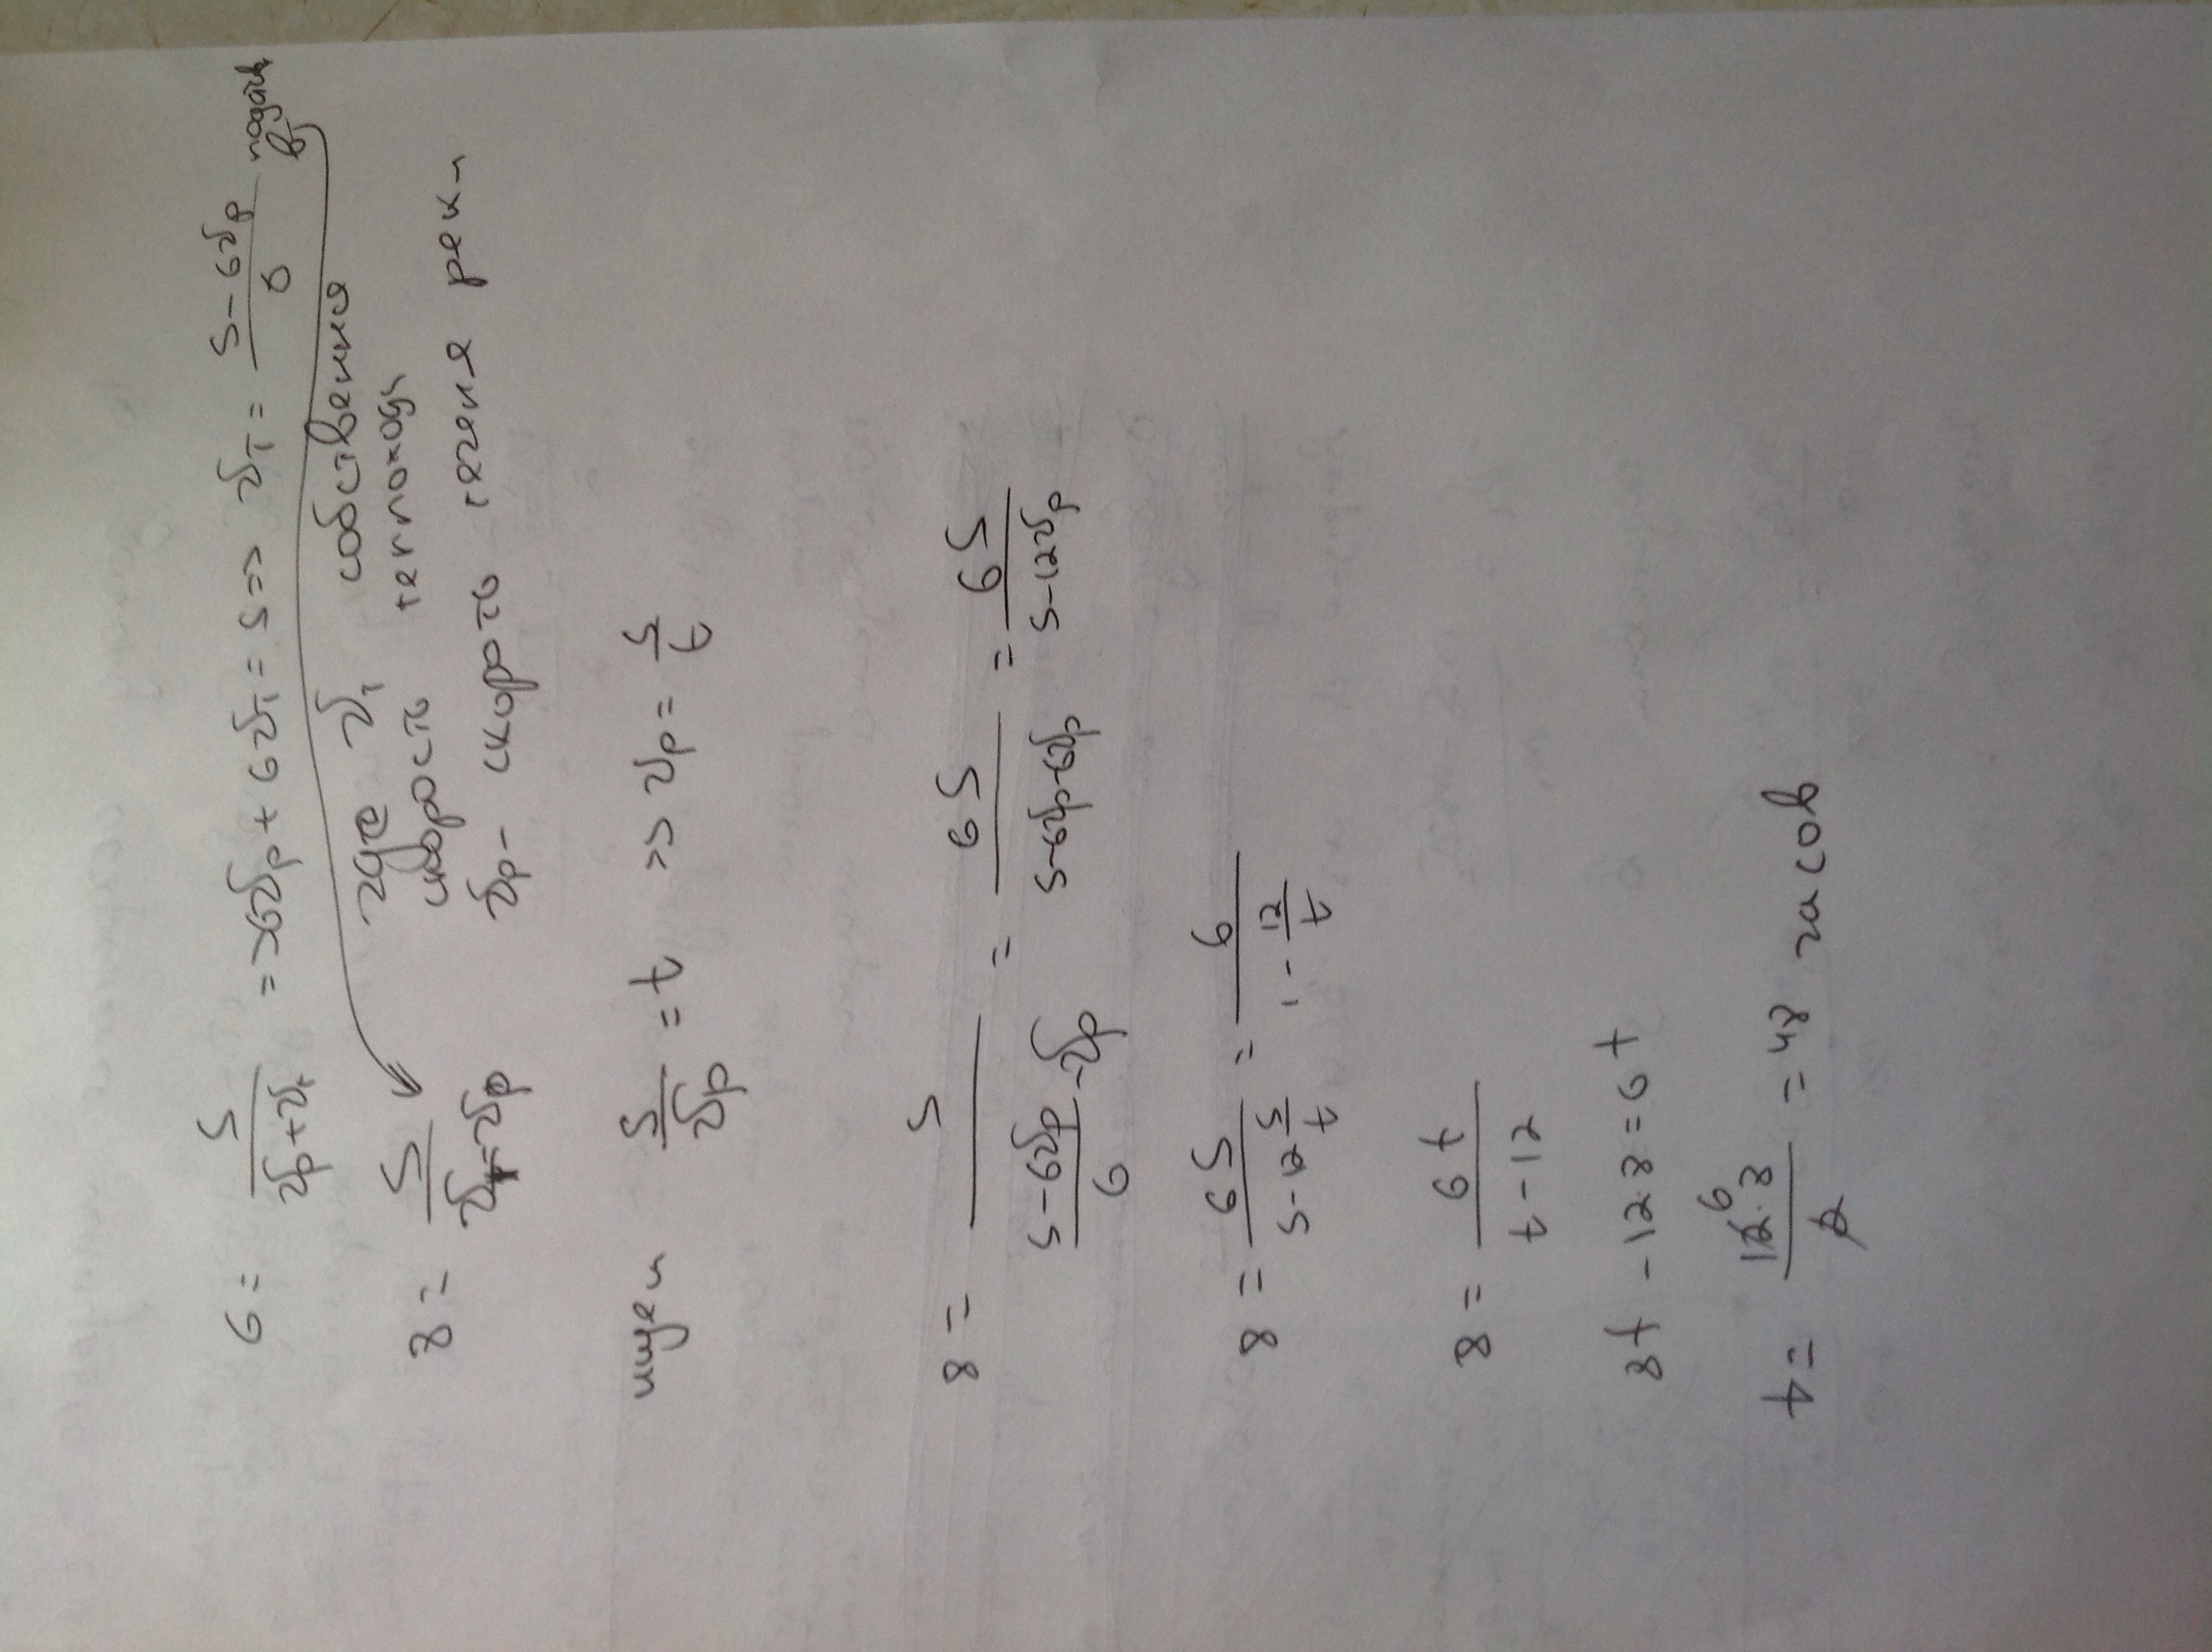 6 = S/(υp+υт) => 6υp + 6υт = S => υт = (S-6υp)/6
8 = S/(υт-υp) где υт собственная
скорость теплохода
υp - скорость течения реки
ищем S/υp = t => υp = S/t
8 = S/((S-6υp)/6 - υp) = 6S/(S-6υp-6υp) = 6S/(S-12υp)
8 = 6S/(S-12 S/t) = 6/(1 - 12/t)
8 = 6t/(t-12)
8t - 12·8 = 6t
t = 12·8/2 = 48 часов